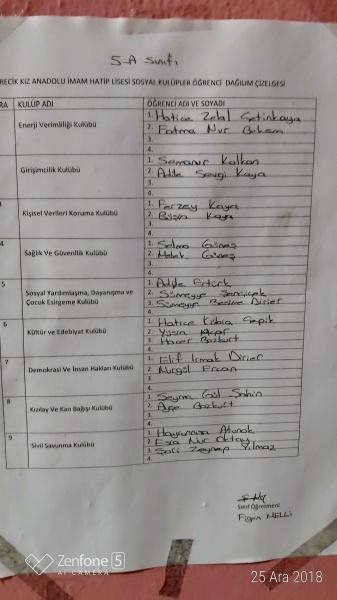 5-A Sınıfı
RECİK KIZ ANADOLU İMAM HATİP LİSESİ SOSYAL KULÜPLER ÖĞRENCİ DAĞILIM ÇİZELGESİ
RA KULÜP ADI ÖĞRENCİ ADI VE SOYADI
Enerji Verimliliği Kulübü
1. Hatice Zelal Çetinkaya
2. Fatma Nur
3.
4.
Girişimcilik Kulübü
1. Semanur Kalkan
2. Adile Sevgi Kaya
3.
4.
Kişisel Verileri Koruma Kulübü
1. Kaya
2. Büşra Kaya
3.
4.
4 Sağlık Ve Güvenlik Kulübü
1. Selma Güneş
2. Melek Güneş
3.
4.
5 Sosyal Yardımlaşma, Dayanışma ve Çocuk Esirgeme Kulübü
1. Adile Ertürk
2. Sümeyye
3. Sümeyye Besime Dirier
4.
6 Kültür ve Edebiyat Kulübü
1. Hatice Kübra
2. Yüsra Acar
3. Hacer Bozkurt
4.
7 Demokrasi Ve İnsan Hakları Kulübü
1. Elif Irmak Dirier
2. Nurgül Ercan
3.
4.
8 Kızılay Ve Kan Bağışı Kulübü
1. Şeyma Gül Şahin
2. Ayşe Bozkurt
3.
4.
9 Sivil Savunma Kulübü
1. Hayrunnisa
2. Esra Nur Oktay
3. Zeynep Yılmaz
4.
Sınıf Öğretmeni
Figen
Zenfone 5
AI CAMERA
25 Ara 2018